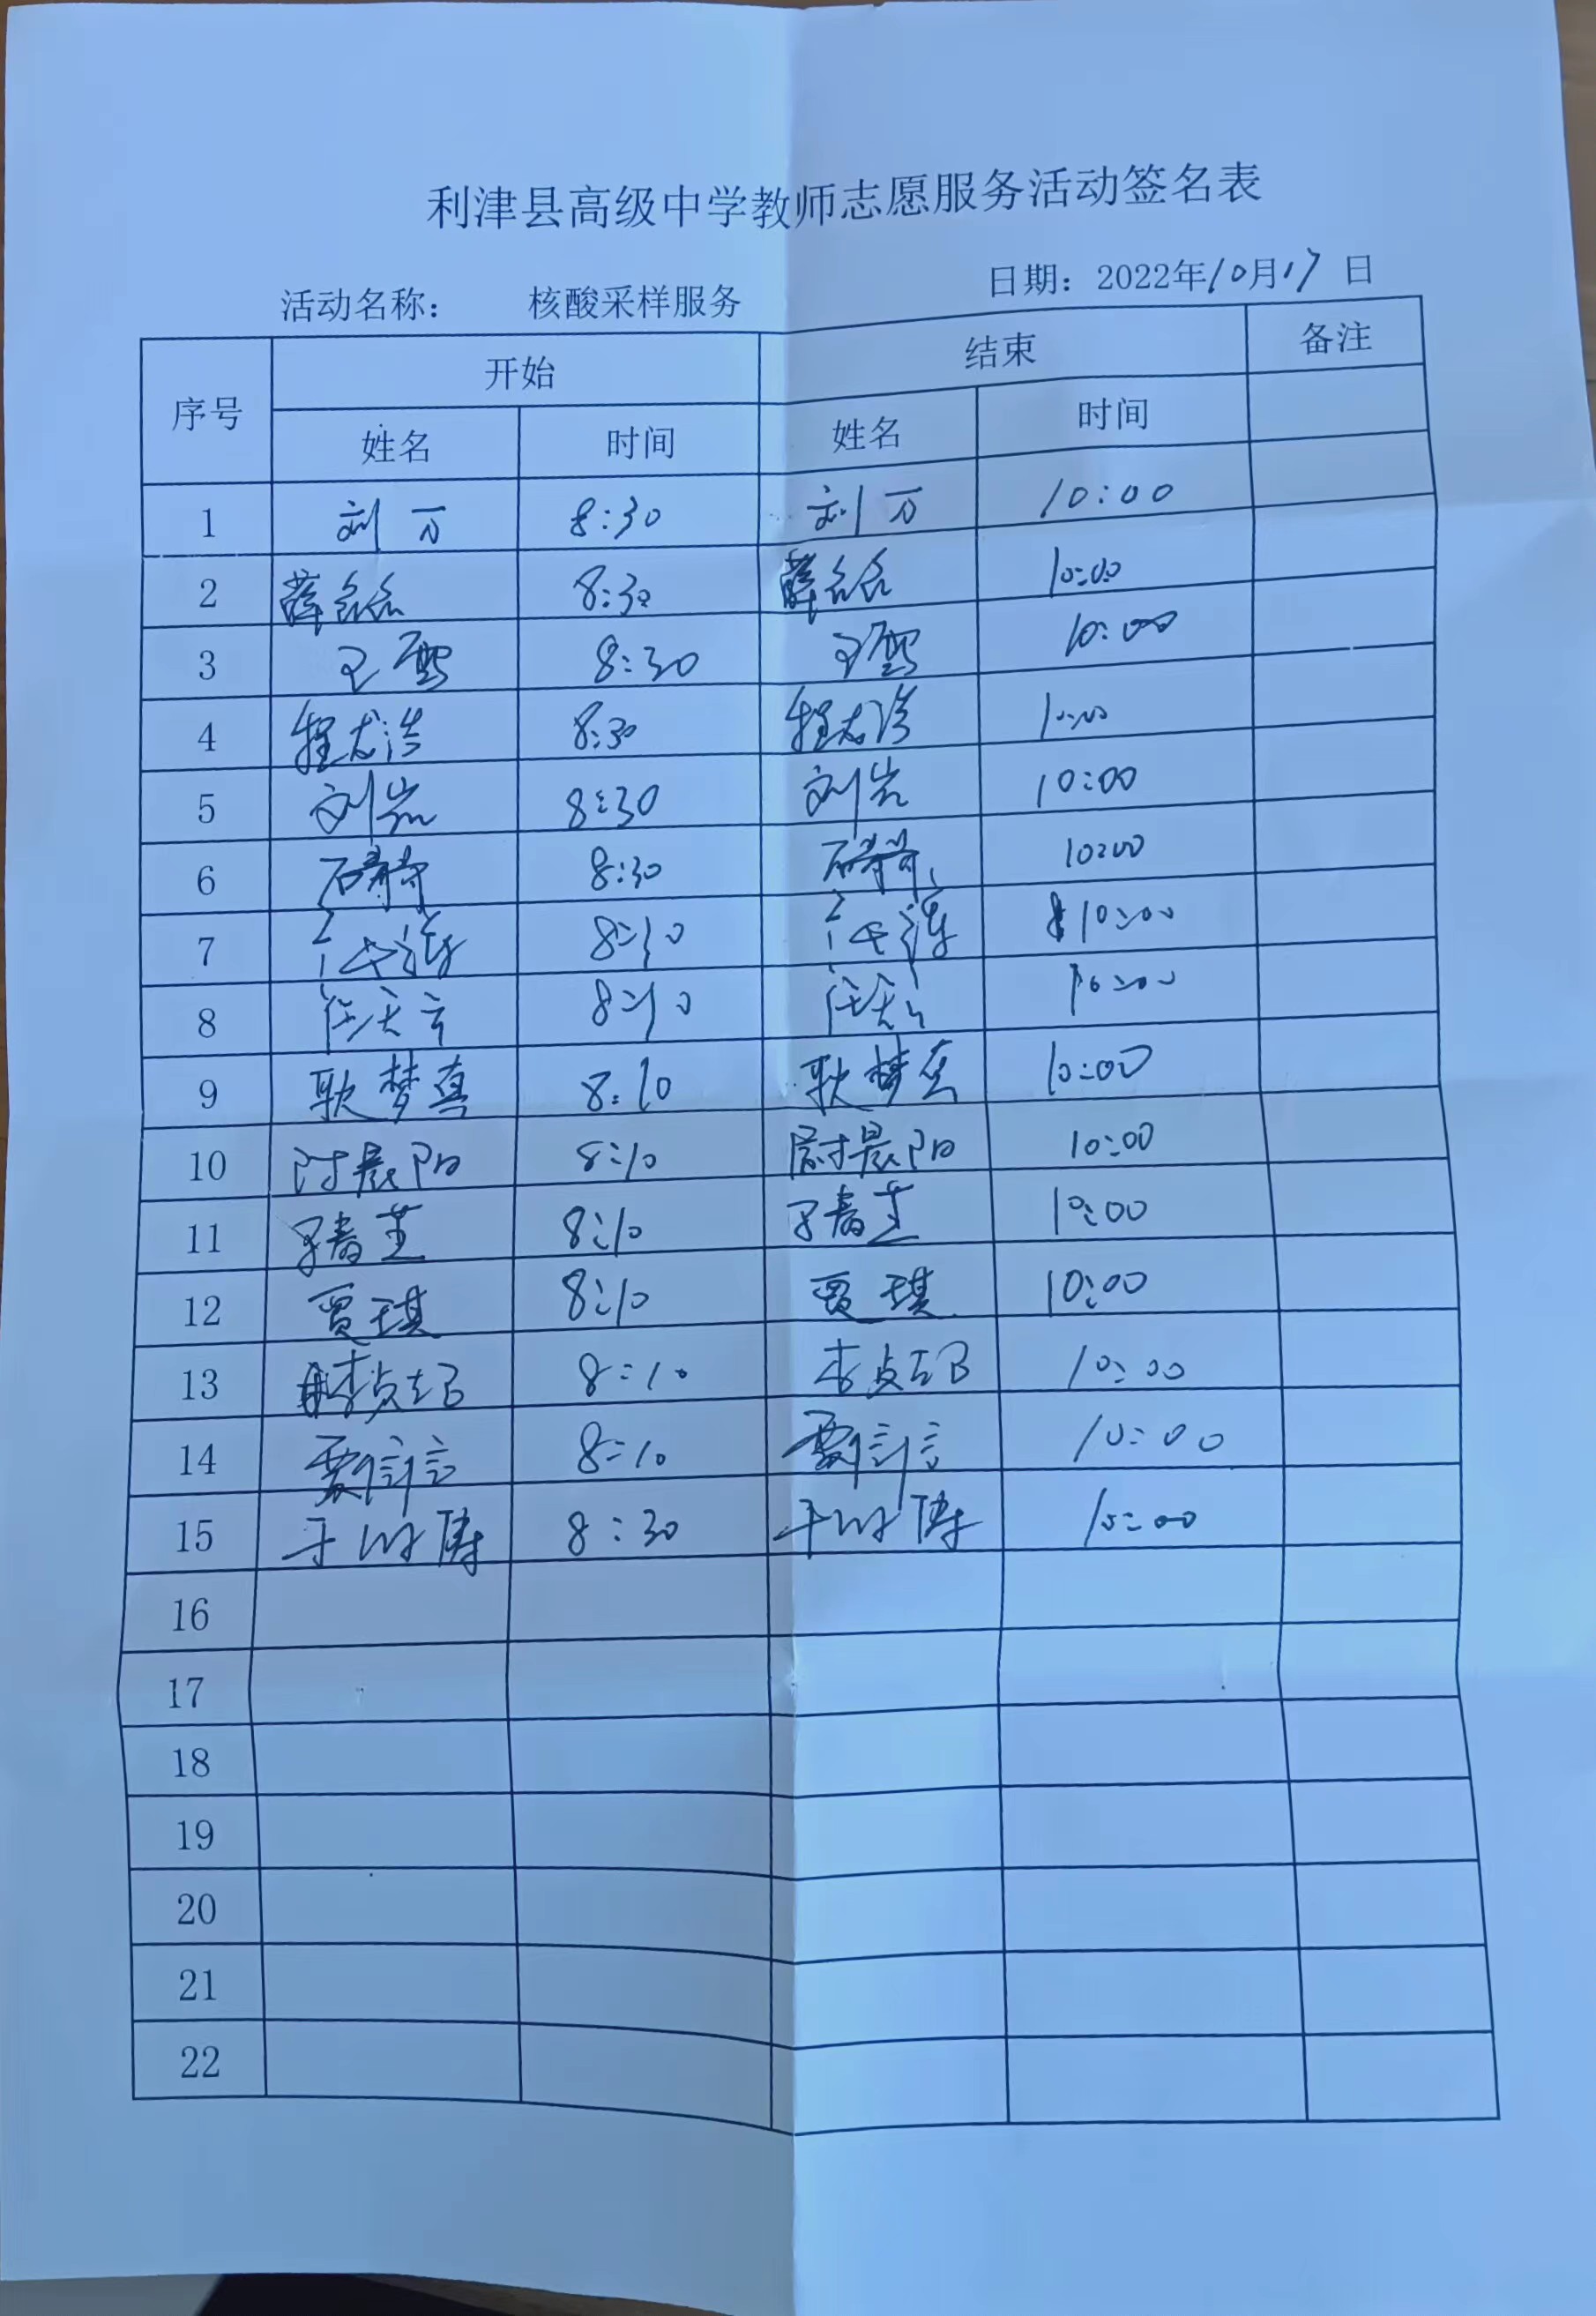 利津县高级中学教师志愿服务活动签名表
活动名称： 核酸采样服务 日期：2022年10月17日
序号 开始 结束 备注
姓名 时间 姓名 时间
1 刘万 8:30 刘万 10:00
2 薛 8:30 薛 10:00
3 王雪 8:30 王雪 10:00
4 程龙浩 8:30 程龙浩 10:00
5 刘岩 8:30 刘岩 10:00
6 石 8:30 石 10:00
7 8:10 10:00
8 任天 8:10 任天 10:00
9 耿梦真 8:10 耿梦真 10:00
10 晨阳 8:10 尉晨阳 10:00
11 春芝 8:10 春芝 10:00
12 贾琪 8:10 贾琪 10:00
13 李 8:10 李 10:00
14 贾 8:10 贾 10:00
15 8:30 10:00
16
17
18
19
20
21
22